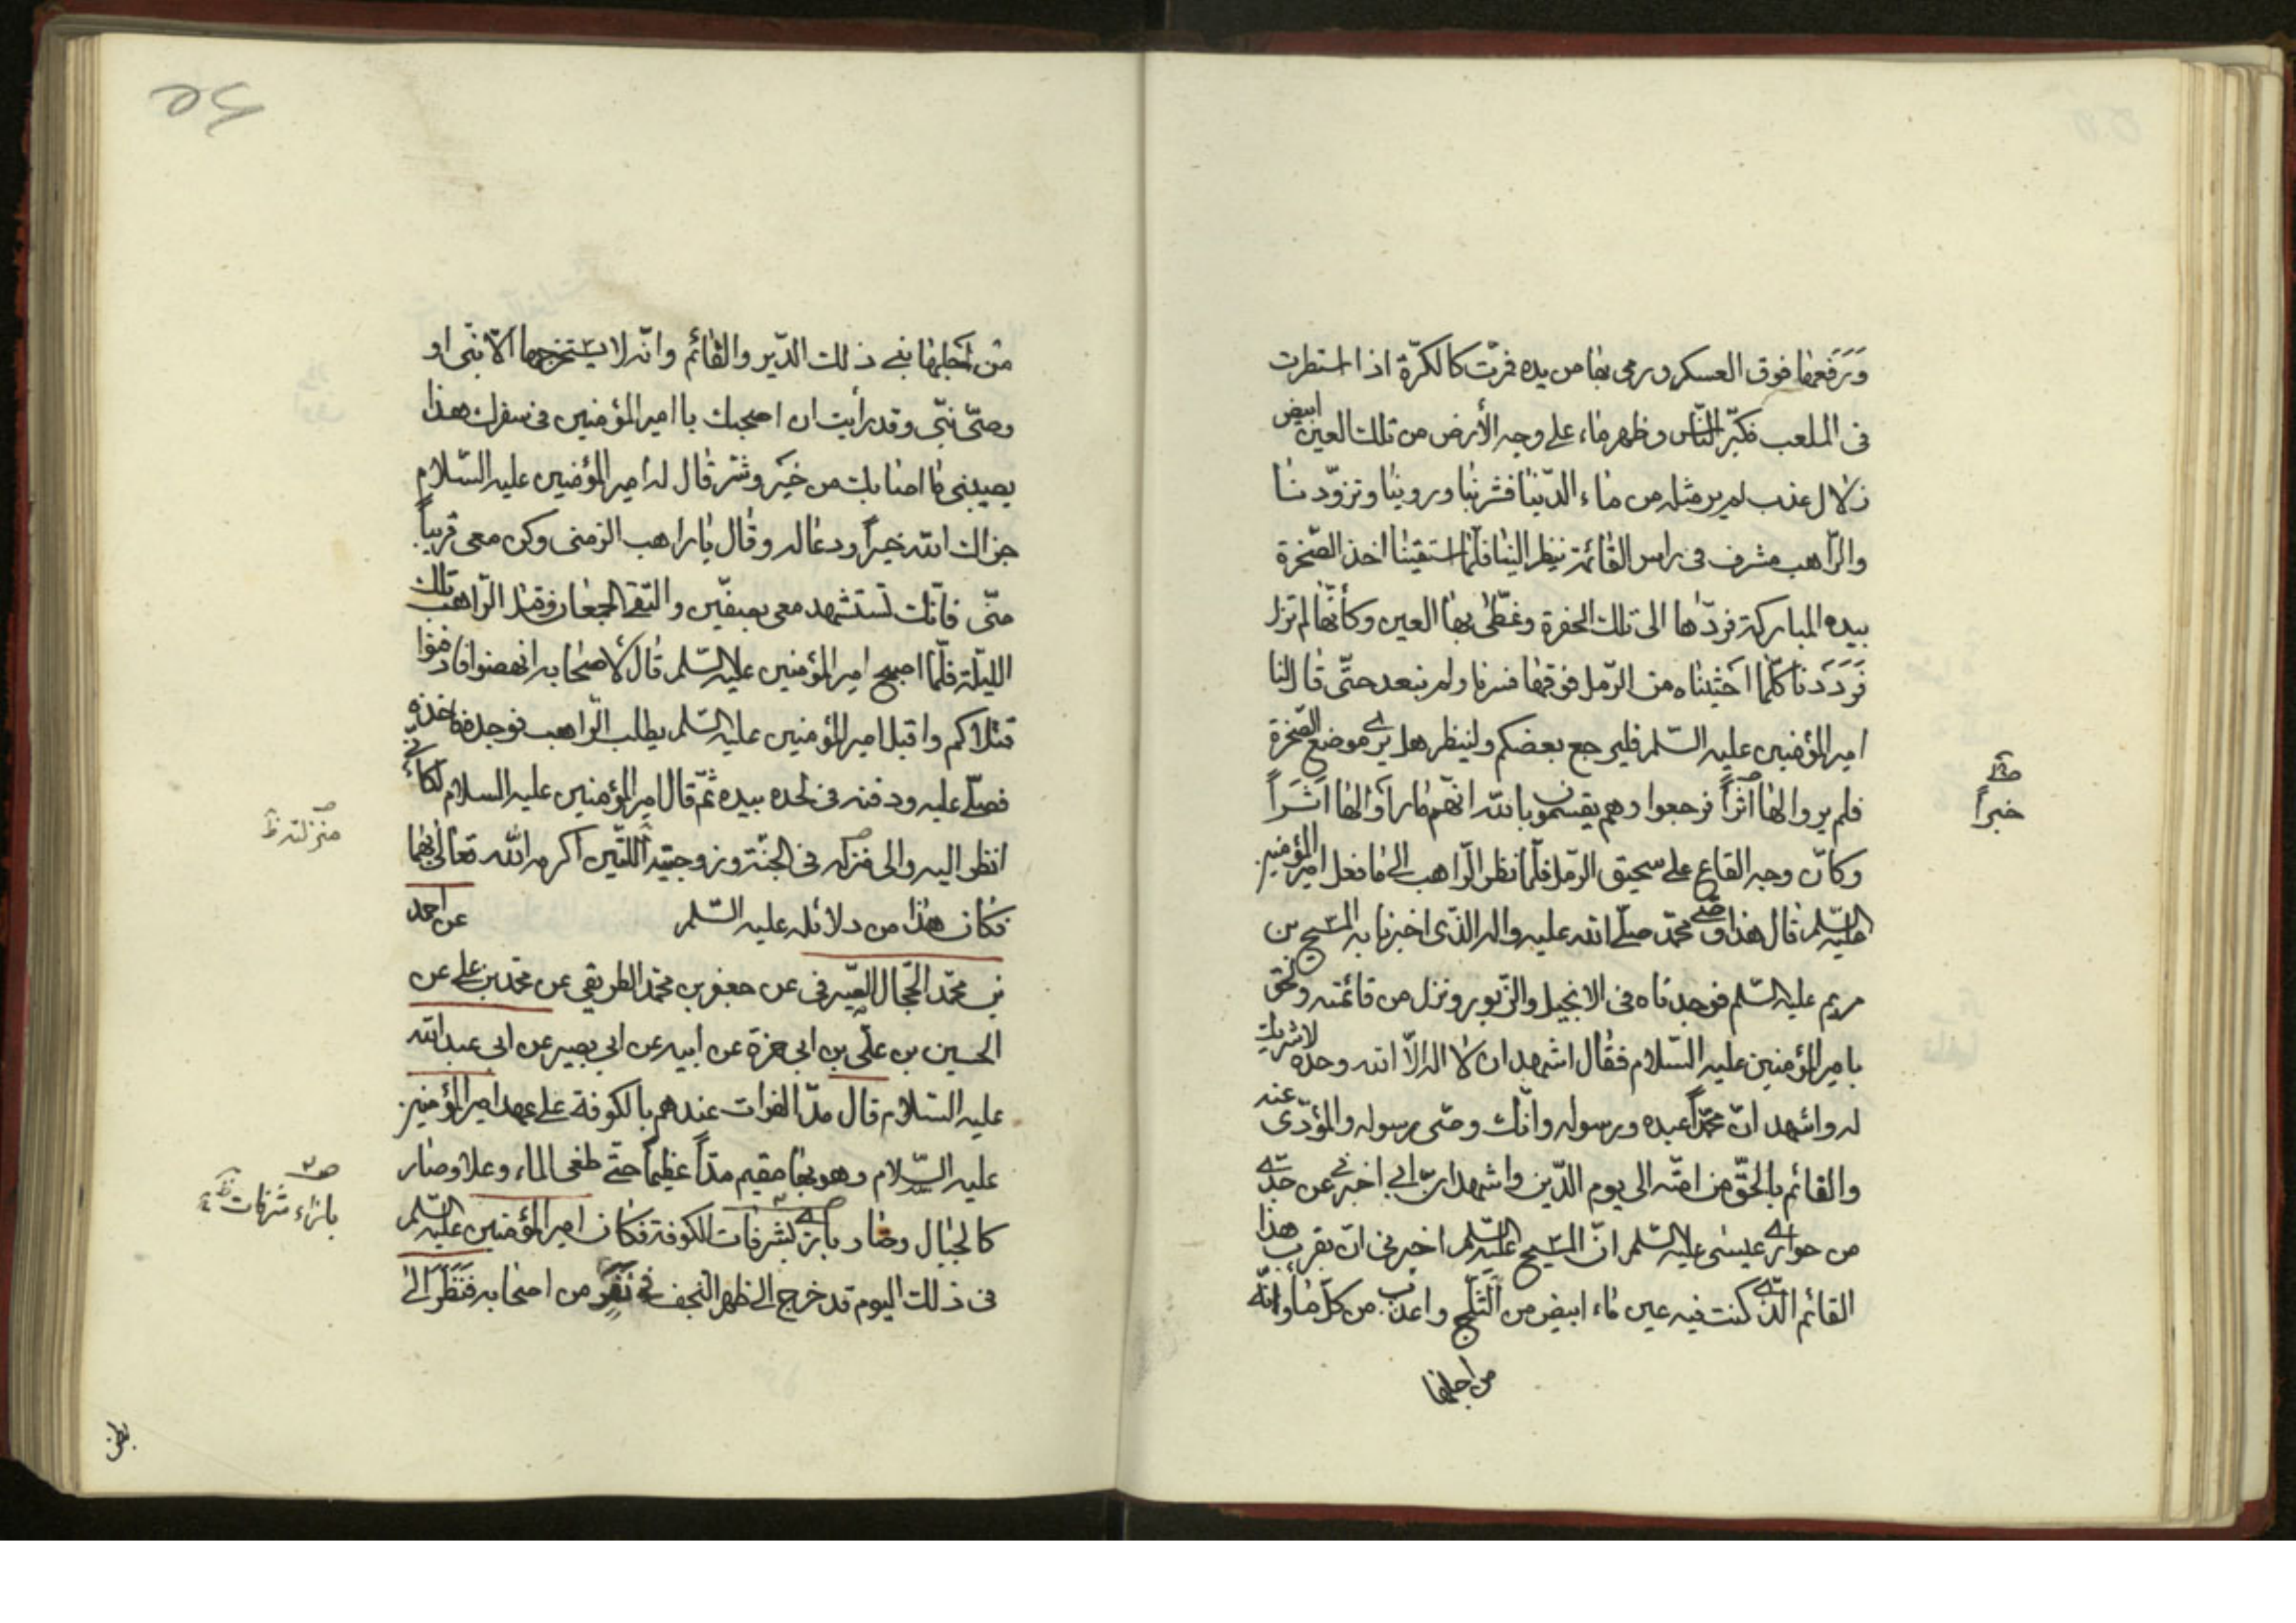 وَرَفَعها فوق العسكر ورمى بها من يده فمرّت كالكرّة اذا استطرت
فى الملعب فكبّر النّاس وظهر ماء على وجه الأرض من تلك العين ابيض
زلال عذب لم ير مثله من ماء الدّنيا فشربنا وروينا وتزوّدنا
والرّاهب مشرف فى راس القائمة ينظر الينا فلمّا استقينا اخذ الصّخرة
بيده المباركة فردّها الى تلك الحفرة وغطّى بها العين وكأنّها لم تزل
فَرَدَدنا كلّما احثيناه من الرّمل فوقها فسرنا ولم نبعد حتّى قال لنا
امير المؤمنين عليه السّلم فليرجع بعضكم ولينظر هل يرى موضع الصّخرة
فلم يروا لها اثراً فرجعوا وهم يقسمون بالله انّهم ما رآوا لها اَثَراً
خبراً
وكانّ وجه القاع على سحيق الرّمل فلمّا نظر الرّاهب الى ما فعل امير المؤمنين
عليه السّلم قال هذا وصى محمّد صلّى الله عليه واله الّذى اخبرنا به المسيح بن
مريم عليه السّلم فوجدناه فى الانجيل والزّبور ونزل من قائمته ولحق
بامير المؤمنين عليه السّلام فقال اشهد ان لا اله الاّ الله وحده لا شريك
له واشهد انّ محمّداً عبده ورسوله وانّك وصّى رسوله والمؤدّى عنه
والقائم بالحقّ من امّته الى يوم الدّين واشهد انّ ابى اخبرنى عن جدّى
من حوارى عيسى عليه السّلم انّ المسيح عليه السّلم اخبرنى انّ بقرب هذا
القائم الّذى كنت فيه عين ماء ابيض من الثّلج واعذب من كلّ ماء وانّه
من اجلها
من اجلها بنى ذلك الدّير والقائم وانّه لا يستخرجها الّا نبّى او
وصّى نبّى وقد رأيت ان اصحبك يا امير المؤمنين فى سفرك هذا
يصيبنى ما اصابك من خير وشرّ قال له امير المؤمنين عليه السّلام
جزاك الله خيراً ودعا له وقال يا راهب الزمنى وكن معى قريباً
منّى فانّك تستشهد معى بصفّين والتقى الجمعان وقتل الرّاهب تلك
اللّيلة فلمّا اصبح امير المؤمنين عليه السّلم قال لأصحابه انهضوا فادفنوا
قتلاكم واقبل امير المؤمنين عليه السّلم يطلب الرّاهب فوجده فاخذه
فصلّى عليه ودفنه فى لحده بيده ثمّ قال امير المؤمنين عليه السلام لكأنّى
انظر اليه والى منزله فى الجنّة وزوجتيه اللّتين اكرمه الله تعالى بهما
منزلته ظ
فكان هذا من دلائله عليه السّلم عن احمد
بن محمّد الحجّال الصّيرفى عن جعفر بن محمّد الطريقى عن محمّد بن على عن
الحسين بن علّى بن ابى حمزة عن ابيه عن ابى بصير عن ابى عبد الله
عليه السّلام قال مدّ الفرات عندهم بالكوفة على عهد امير المؤمنين
عليه السّلام وهو بها مقيم مدّاً عظيماً حتّى طغى الماء وعلا وصار
كالجبال وصار بازى شرفات الكوفة فكان امير المؤمنين عليه السّلم
بازاء شرفات
فى ذلك اليوم قد خرج الى ظهر النّجف فى نَفَرٍ من اصحابه فَنَظَرَ الى